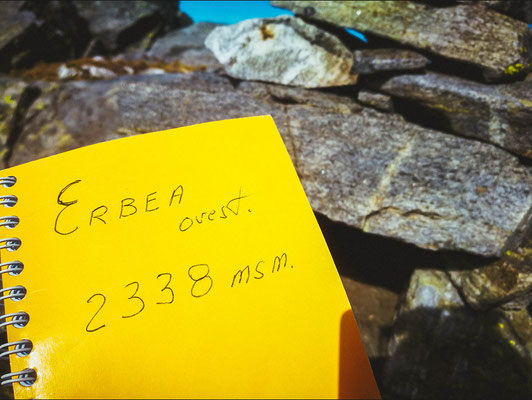 ERBEA
ovest.
2338 msm.